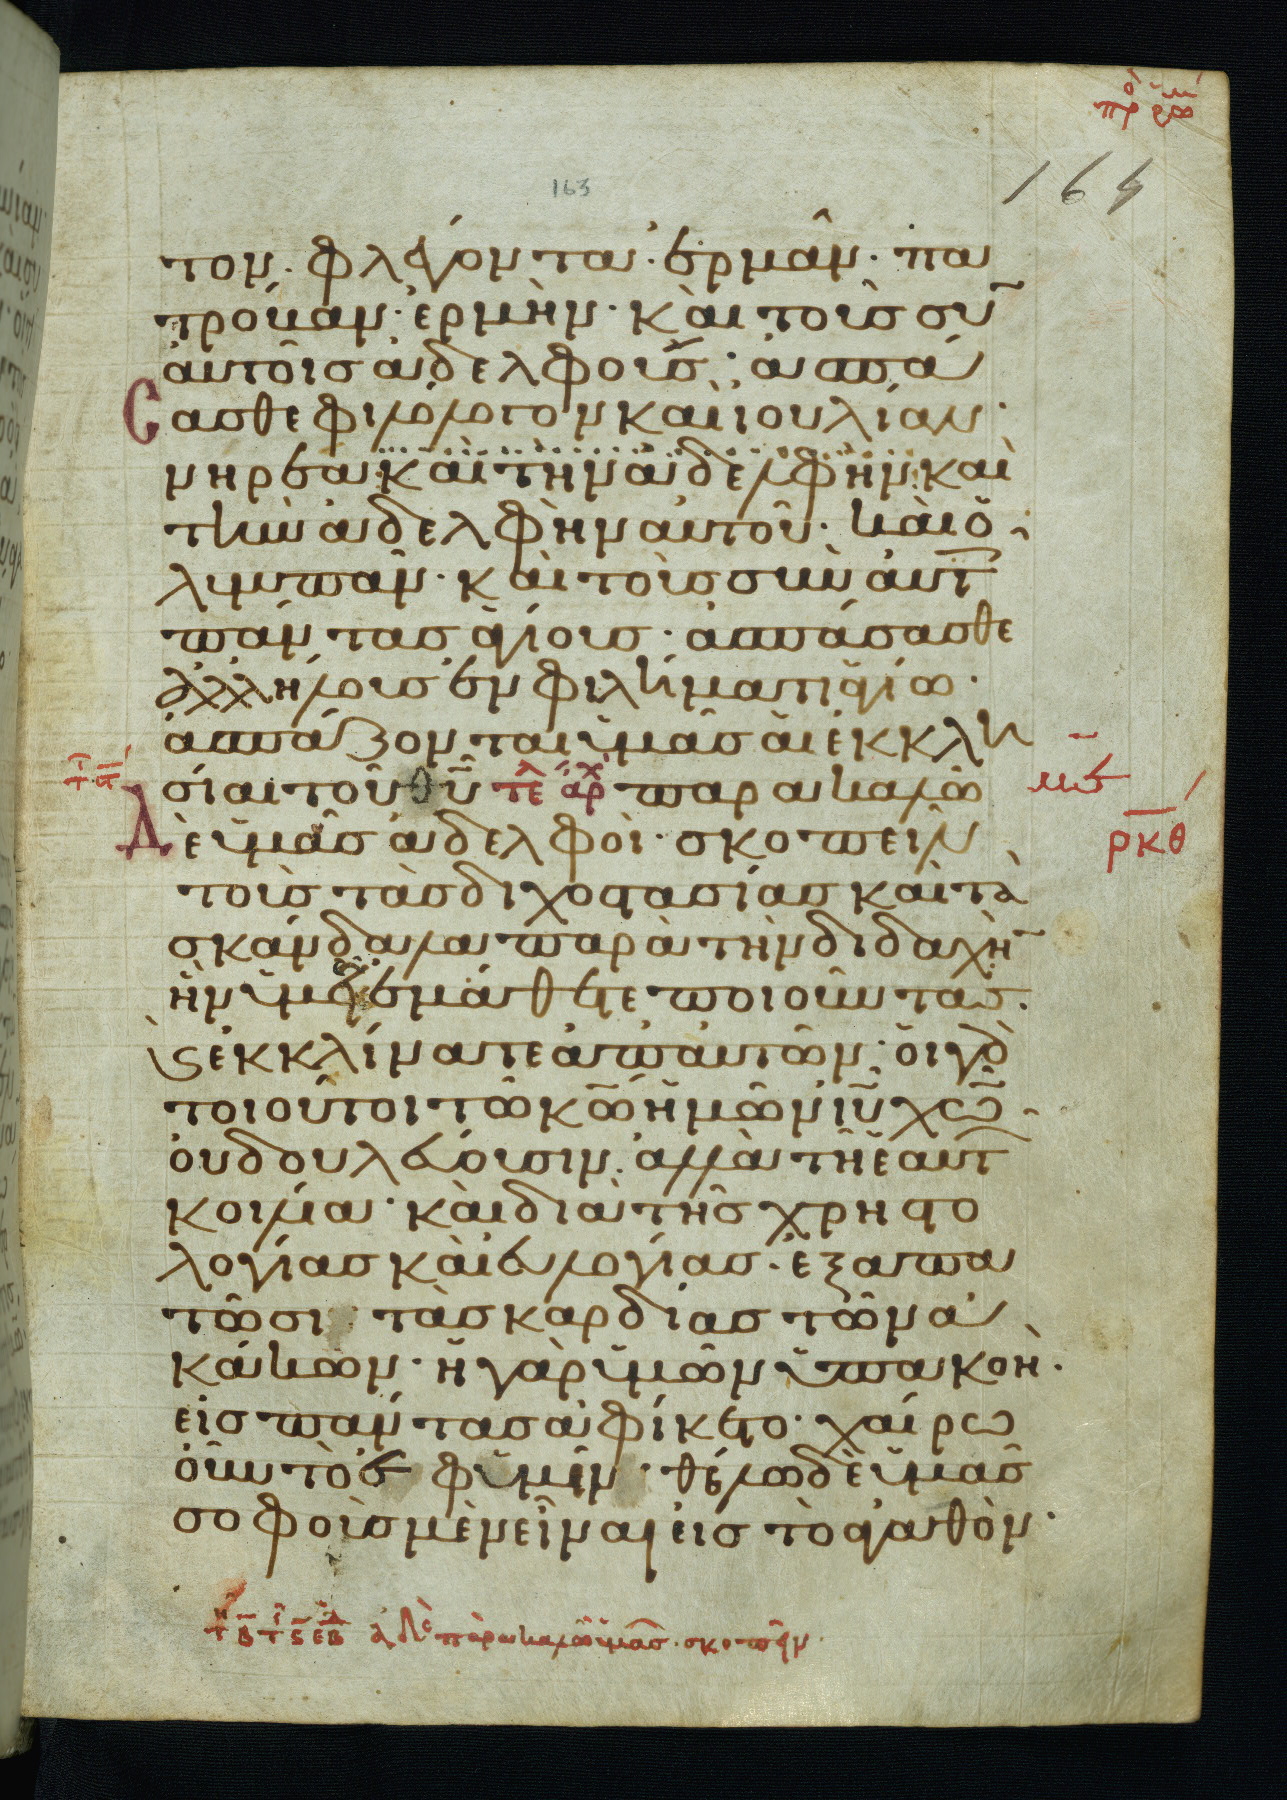 πρ ρωμ
164
163
τον· φλέγοντα· ἑρμᾶν· πα
τρόβαν· ἑρμὴν· καὶ τοὺς σὺ
αὐτοῖς ἀδελφούς· ἀσπά
σασθε φιλόλογον καὶ ἰουλίαν·
νηρέα καὶ τὴν ἀδελφὴν καὶ
τὴν ἀδελφὴν αὐτοῦ· καὶ ὀ
λυμπᾶν· καὶ τοὺς σὺν αὐτ
πάντας ἁγίους· ἀσπάσασθε
ἀλλήλους ἐν φιλήματι ἁγίω·
ἀσπάζονται ὑμᾶς αἱ ἐκκλη
σίαι τοῦ θῦ τελ ἀρχ παρακαλῶ
δὲ ὑμᾶς ἀδελφοὶ· σκοπεῖν
τοὺς τὰς διχοστασίας καὶ τὰ
σκάνδαλα παρὰ τὴν διδαχὴ
ἣν ὑμεῖς ἐμάθετε ποιοῦντας·
καὶ ἐκκλίνατε ἀπ' αὐτῶν· οἱ γὰρ
τοιοῦτοι τῶ κω ἡμῶν ιυ χω
οὐ δουλεύουσιν· ἀλλὰ τῆ ἑαυτ
κοιλία· καὶ διὰ τῆς χρηστο
λογίας καὶ εὐλογίας· ἐξαπα
τῶσι τὰς καρδίας τῶν ἀ
κάκων· ἡ γὰρ ὑμῶν ὑπακοὴ·
εἰς πάντας ἀφίκετο· χαίρω
οὖν τὸ ἐφ ὑμῖν· θέλω δὲ ὑμᾶς
σοφοὺς μὲν εἶναι εἰς τὸ ἀγαθὸν·
μϛ
ρκθ
ἀδελ παρακαλῶ ὑμᾶς· σκοπεῖν